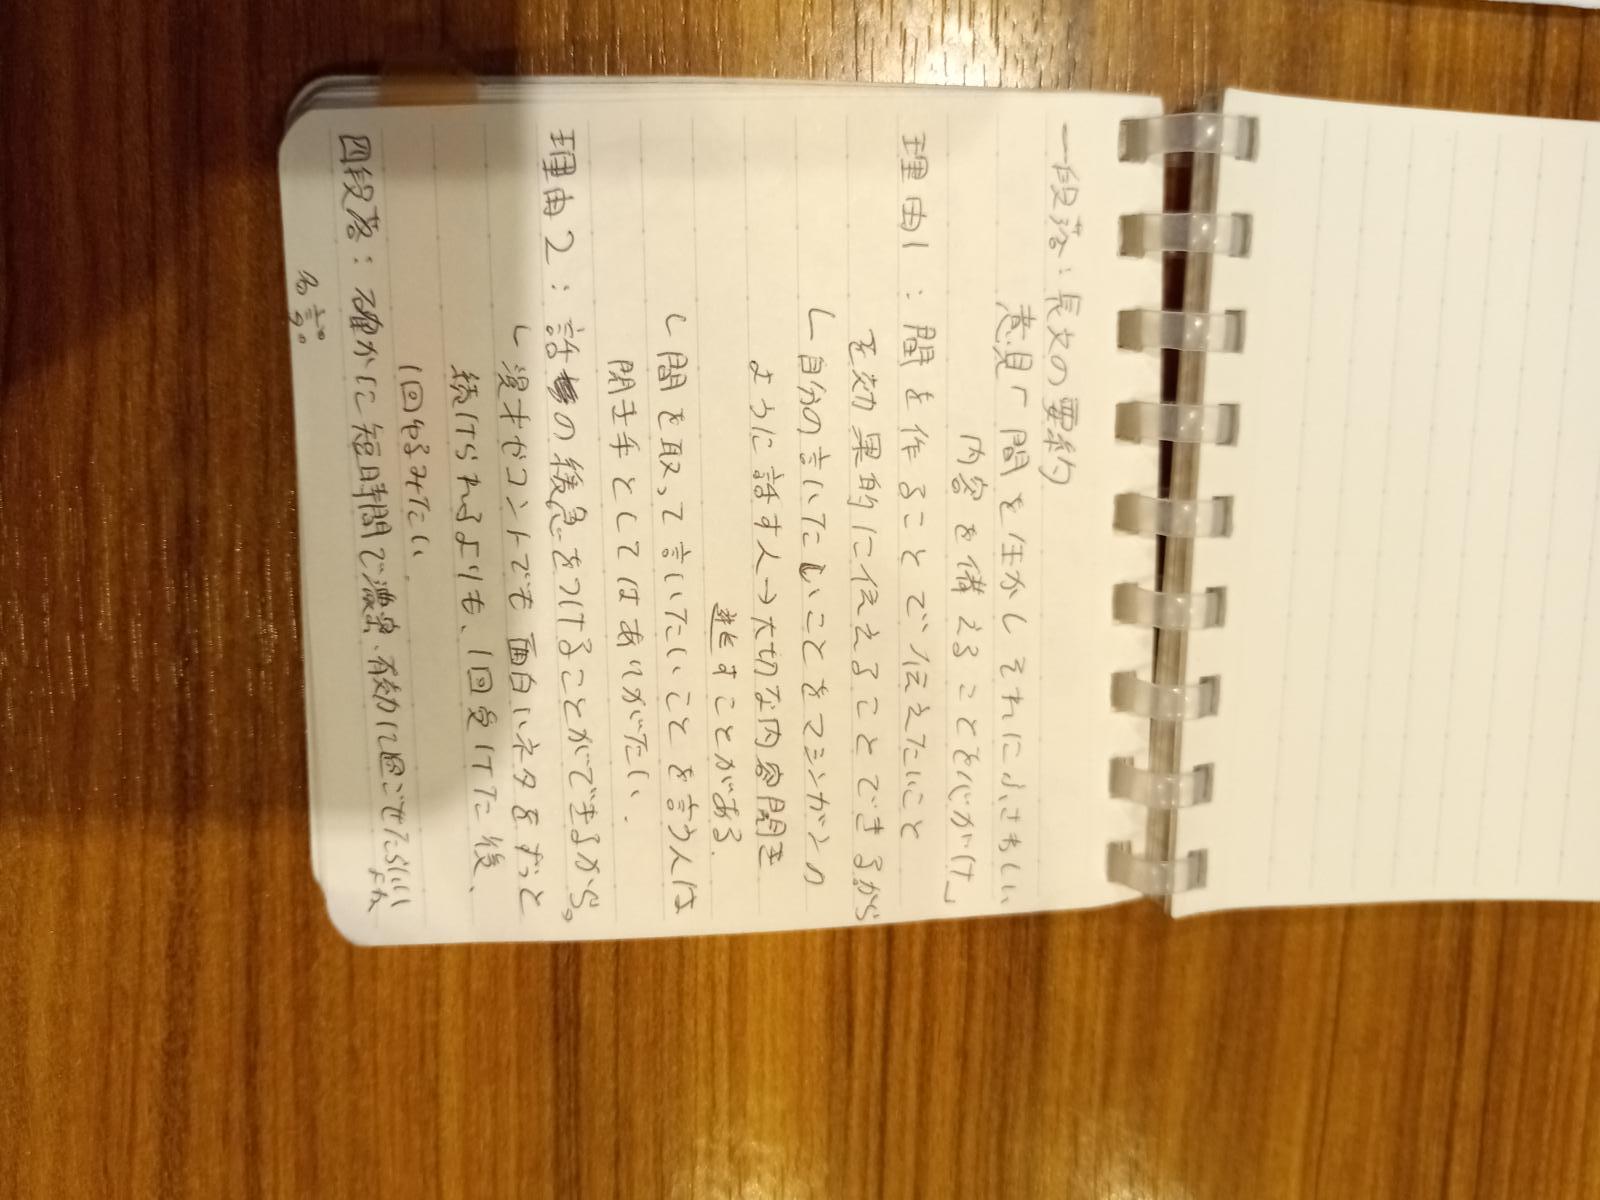 一段落：長文の要約
意見「間を生かしそれにふさわしい
内容を備えることを心がけ」
理由1：間を作ることで伝えたいこと
を効果的に伝えることできるから
└自分の言いたいことをマシンガンの
ように話す人→大切な内容聞き
逃すことがある.
└間を取って言いたいことを言う人は
聞き手としてはありがたい.
理由2：話の緩急をつけることができるから。
└漫才やコントでも面白いネタをずっと
続けられるよりも、1回受けた後、
1回ゆるみたい.
四段落：確かに短時間で濃く、有効に過ごせたらいい
よね